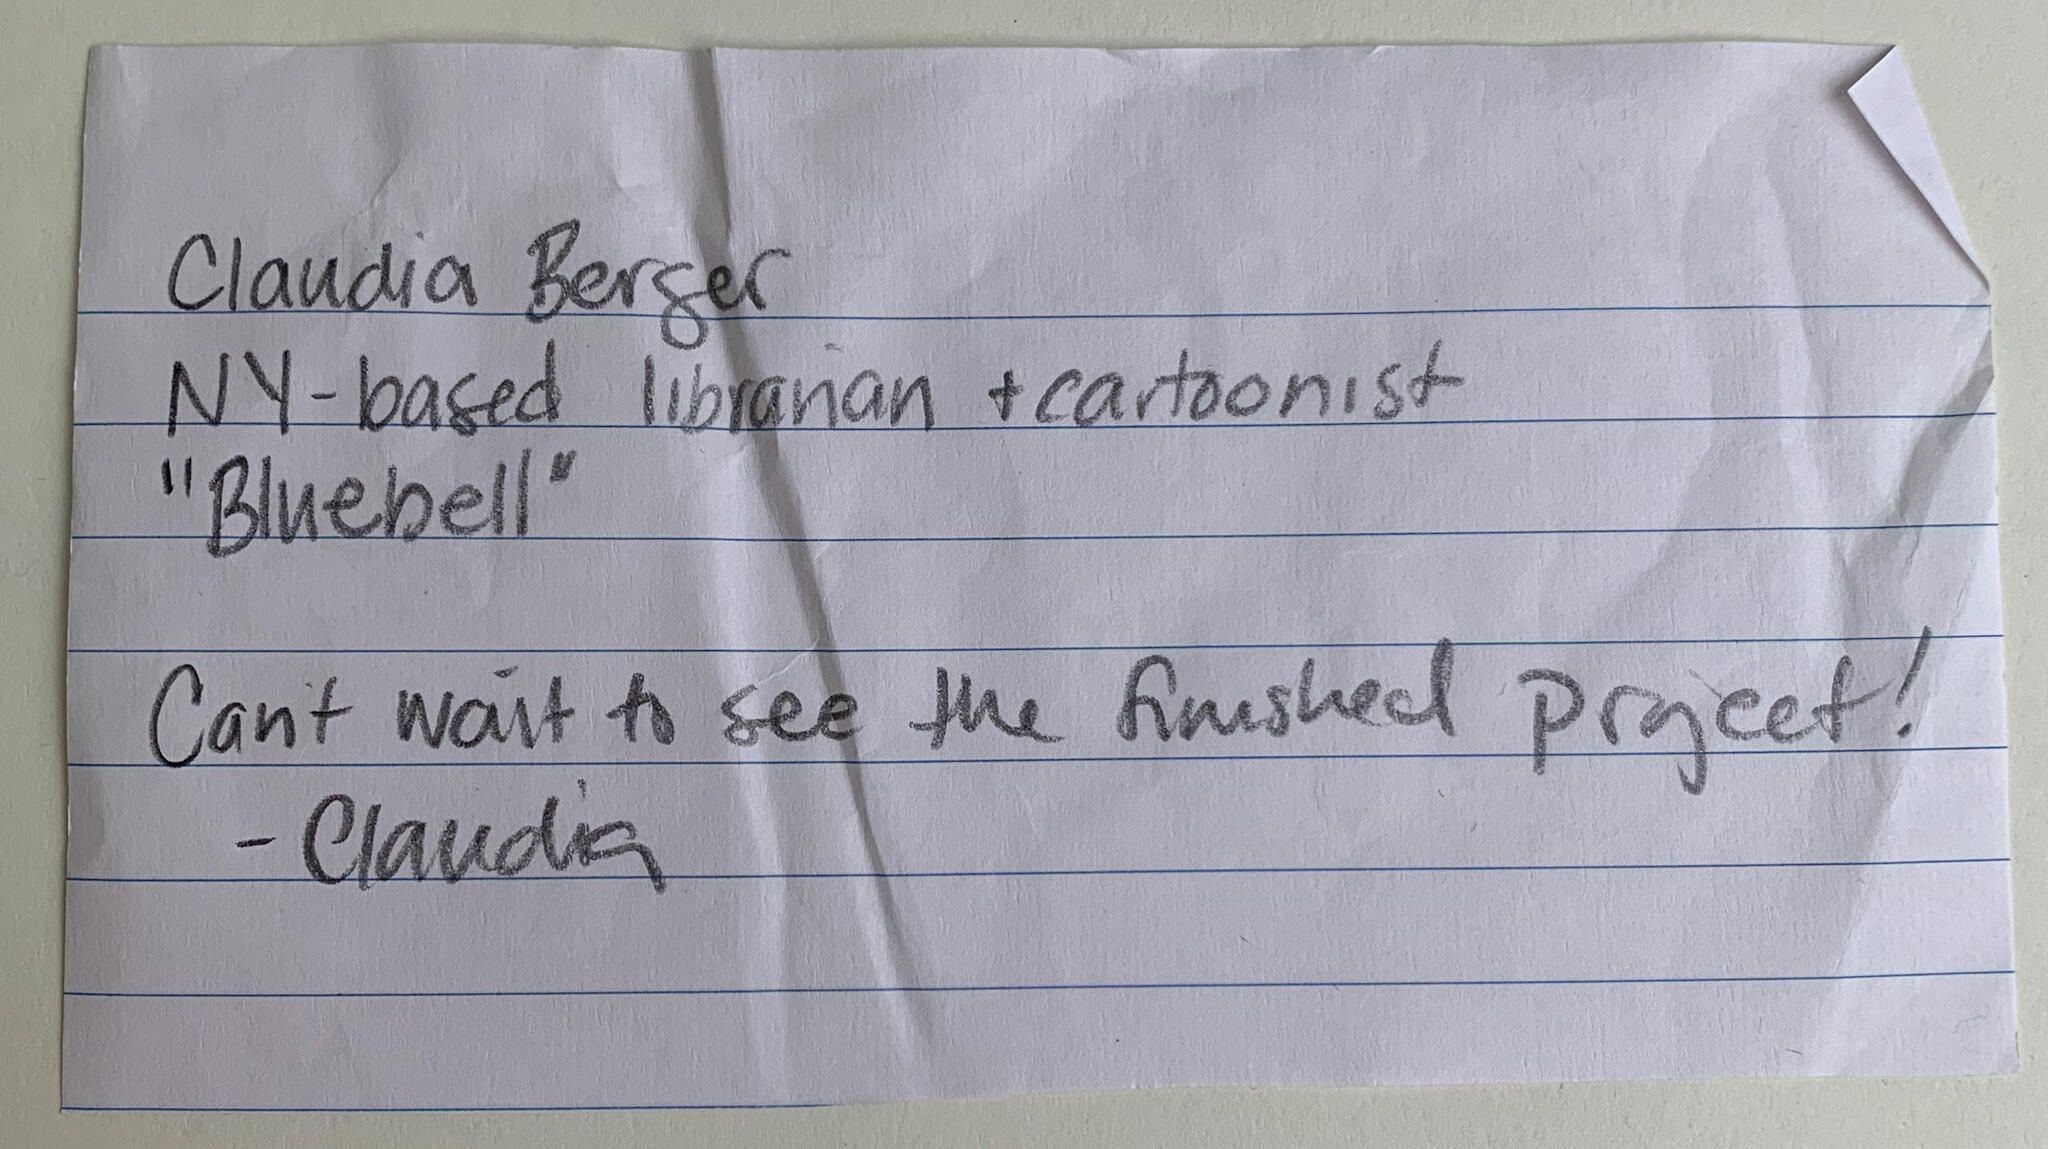 Claudia Berger
NY-based librarian + cartoonist
"Bluebell"
Can't wait to see the finished project!
- Claudia